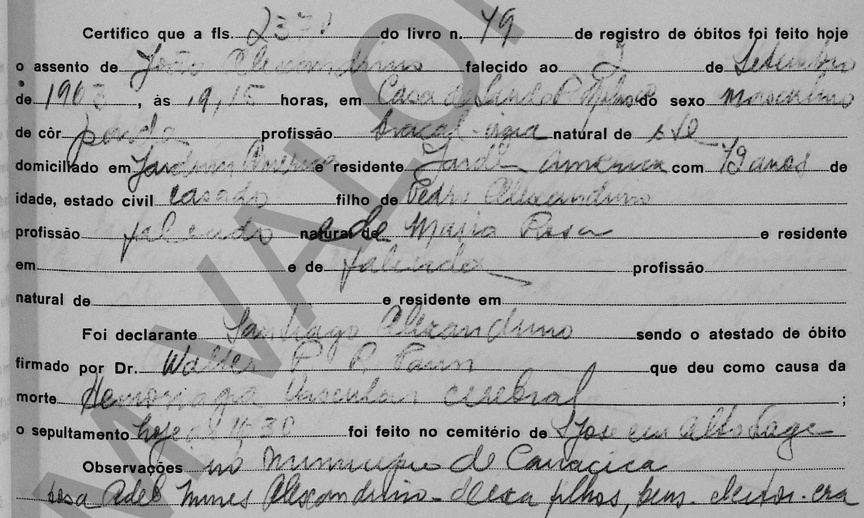 Certifico que a fls. 2370 do livro n. 79 de registro de óbitos foi feito hoje
o assento de João Alexandrino falecido ao 2 de Setembro
de 1963, às 19,15 horas, em Casa de Saude do sexo masculino
de côr parda profissão braçal natural de
domiciliado em Jardim America e residente Jardi America com 79 anos de
idade, estado civil casado filho de Pedro Alexandrino
profissão falecido natural de e de Maria Rosa e residente
em e de falecidos profissão
natural de e residente em
Foi declarante Santiago Alexandrino sendo o atestado de óbito
firmado por Dr. Walter P. P. que deu como causa da
morte Hemorragia Vascular cerebral ;
o sepultamento hoje as 16,30 foi feito no cemitério de S José em Alto Lage
Observações no Municipio de Cariacica
Adel Nunes Alexandrino - Deixa filhos, bens. eleitor. era